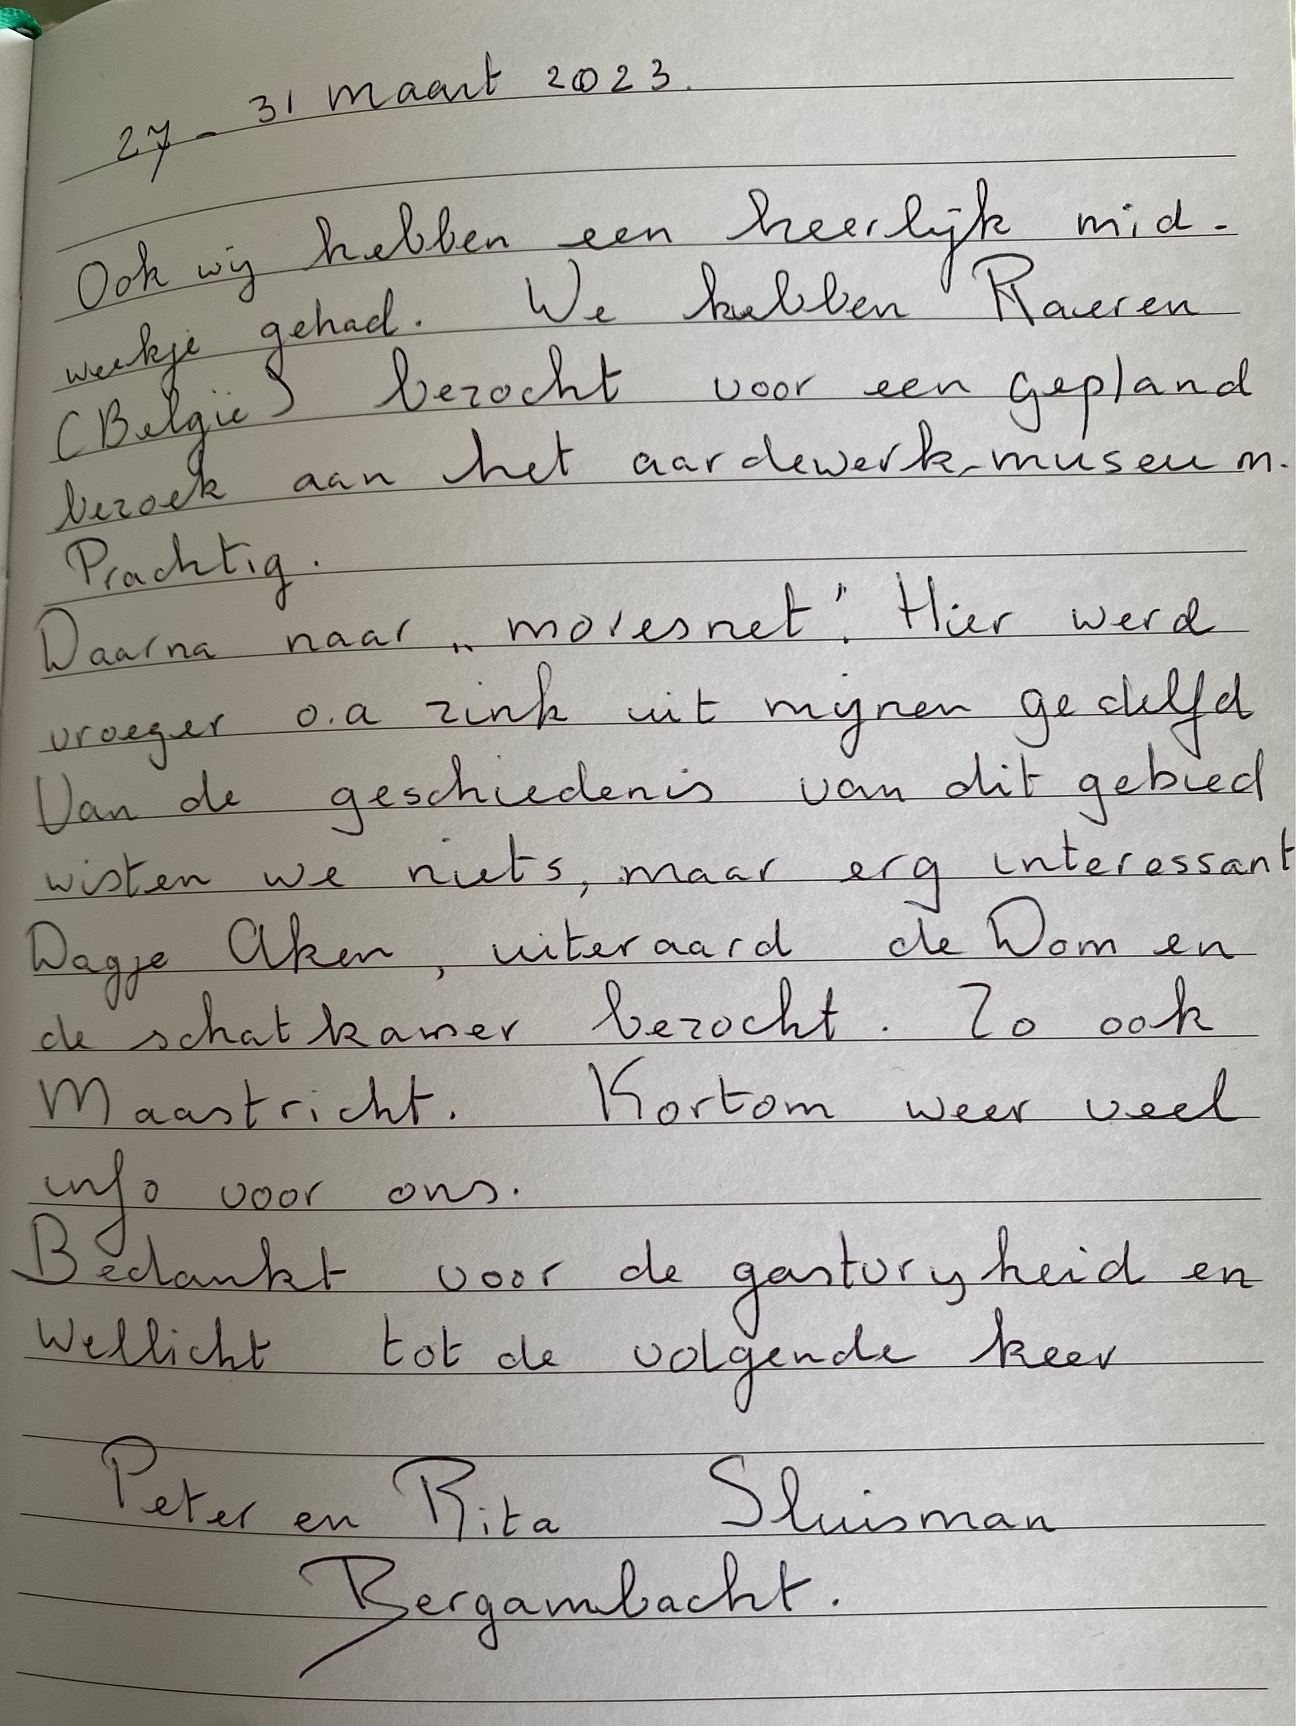 27 - 31 maart 2023.
Ook wij hebben een heerlijk mid-
weekje gehad. We hebben Raeren
(België) bezocht voor een gepland
bezoek aan het aardewerk-museum.
Prachtig.
Daarna naar „moresnet”. Hier werd
vroeger o.a zink uit mijnen gedelfd
Van de geschiedenis van dit gebied
wisten we niets, maar erg interessant
Dagje Aken, uiteraard de Dom en
de schatkamer bezocht. Zo ook
Maastricht. Kortom weer veel
info voor ons.
Bedankt voor de gastvrijheid en
Wellicht tot de volgende keer
Peter en Rita Sluisman
Bergambacht.